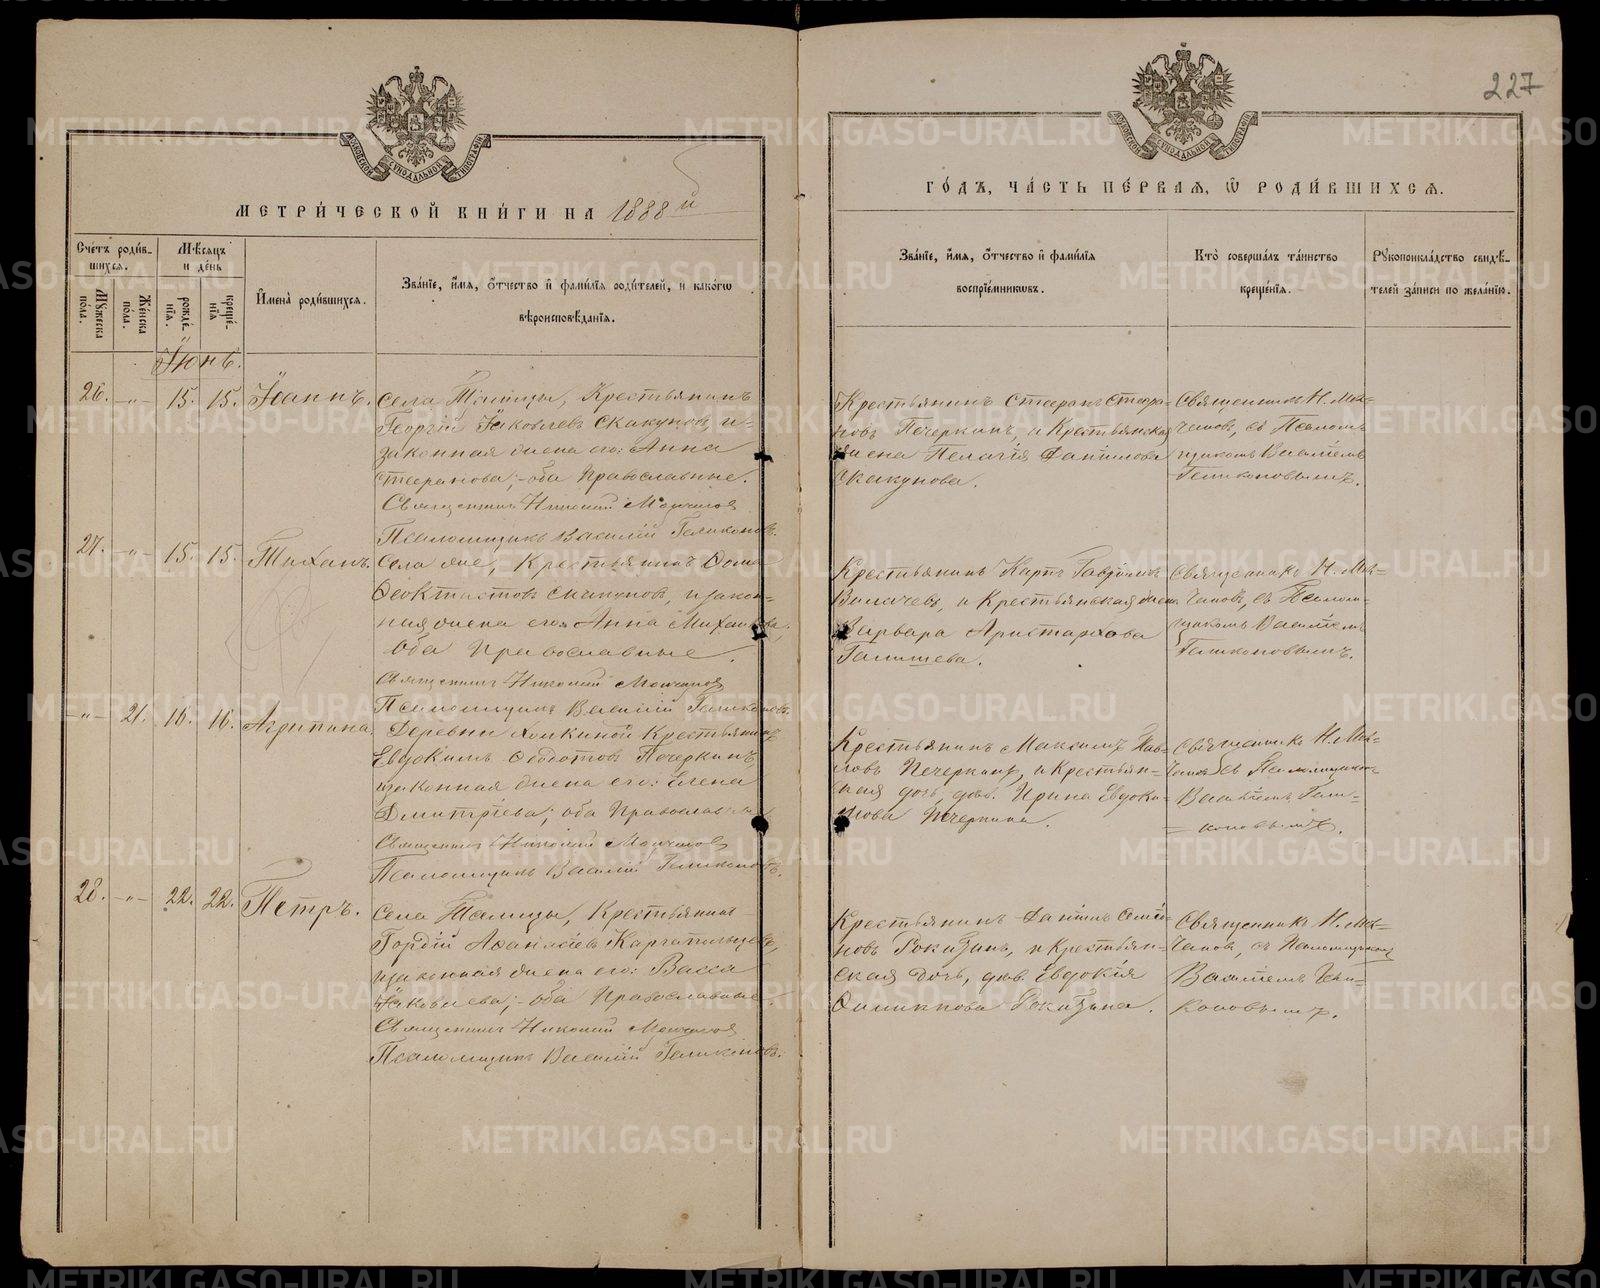 227
МОСКОВСКОЙ СУНОДАЛЬНОЙ ТИПОГРАФІИ
МЕТРИ́ЧЕСКОЙ КНИ́ГИ НА 1888й
ГО́ДЪ, ЧА́СТЬ ПЕ́РВАЯ, Ѿ РОДИ́ВШИХСЯ.
Сче́тъ роди́в-
шихся.
Му́жеска по́ла.
Же́нска по́ла.
Мѣ́сяцъ
и де́нь
рожде́-
нїя.
креще́-
нїя
И҆мена̀ роди́вшихся.
Зва́нїе, и҆́мя, ѻ҆́тчество и҆ фами́лїя роди́телей, и како́гѡ
вѣроисповѣ́данїя.
Зва́нїе, и҆́мя, ѻ҆́тчество и҆ фами́лїя
воспрїе́мниковъ.
Кто̀ соверша́лъ та́инство
креще́нїя.
Рꙋкоприкла́дство свидѣ́-
телей за́писи по жела́нїю.
Іюнь.
26. -"- 15. 15. Іоаннъ.
Села Талицы, Крестьянинъ
Георгій Яковлевъ Скакуновъ, и
законная жена его: Анна
Стефанова; - оба Православные.
Священникъ Николай
Псаломщикъ Василій Геликоновъ.
Крестьянинъ Стефанъ Стефа-
новъ Печеркинъ, и Крестьянская
жена Пелагія Данилова
Скакунова.
Священникъ Н. Мол-
чановъ, съ Псалом-
щикомъ Василіемъ
Геликоновымъ.
27. -"- 15. 15. Тихонъ.
Села тое, Крестьянинъ Фома
Феоктистовъ Скакуновъ, и закон-
ная жена его: Анна Михайлова,
оба Православные.
Священникъ Николай
Псаломщикъ Василій Геликоновъ.
Крестьянинъ Карпъ Гавриловъ
и Крестьянская жена
Варвара Аристархова
Галишева.
Священникъ Н. Мол-
чановъ, съ Псалом-
щикомъ Василіемъ
Геликоновымъ.
-"- 21. 16. 16. Агрипина
Деревни Крестьянинъ
Евдокимъ Федотовъ Печеркинъ,
и законная жена его: Елена
Димитріева; оба Православные
Священникъ Николай
Псаломщикъ Василій Геликоновъ.
Крестьянинъ Максимъ Пав-
ловъ Печеркинъ, и Крестьян-
ская дочь, дѣв. Ирина Евдоки-
мова Печеркина.
Священникъ Н. Мол-
чановъ съ Псаломщикомъ
Василіемъ Гели-
коновымъ.
28. -"- 22. 22. Петръ.
Села Талицы, Крестьянинъ
Гордій Афанасіевъ Каргапольцевъ,
и законная жена его: Васса
Яковлева; - оба Православные.
Священникъ Николай
Псаломщикъ Василій Геликоновъ.
Крестьянинъ Семё-
новъ и Крестьян-
ская дочь, дѣв. Евдокія
Священникъ Н. Мол-
чановъ, съ Псаломщикомъ
Василіемъ Гели-
коновымъ.